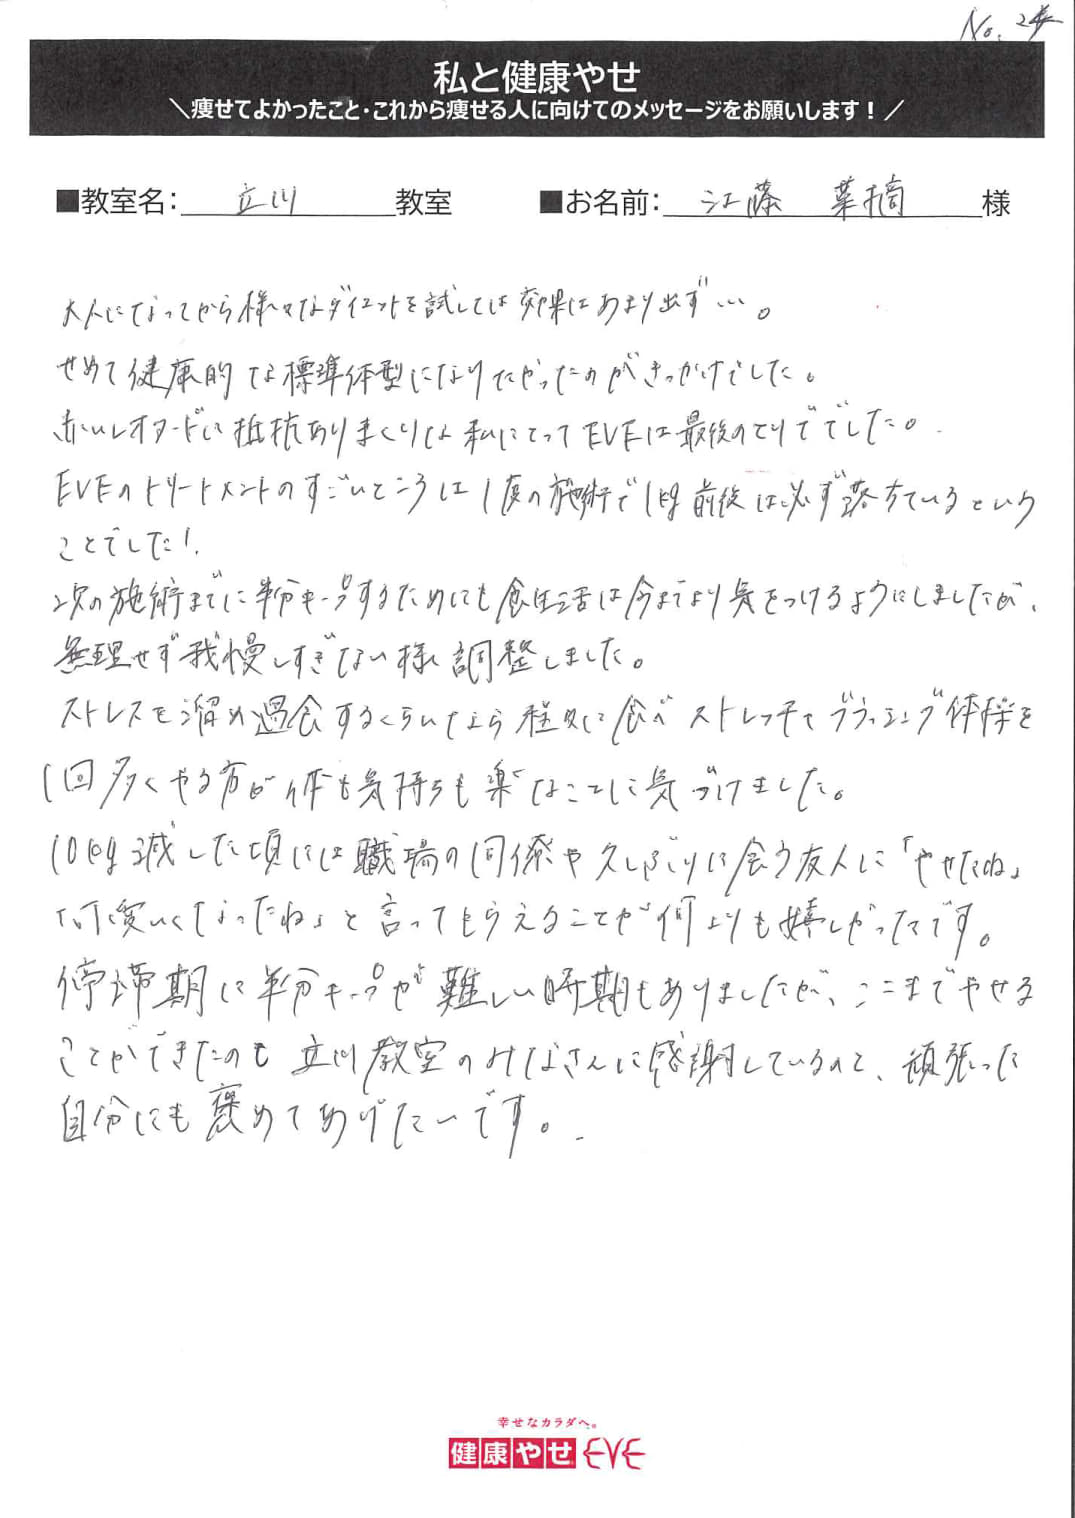 No. 24
私と健康やせ
＼痩せてよかったこと・これから痩せる人に向けてのメッセージをお願いします！／
■教室名： 立川 教室 ■お名前： 江藤 菜摘 様
大人になってから様々なダイエットを試しては効果はあまり出ず…。
せめて健康的な標準体型になりたかったのがきっかけでした。
赤いレオタードに抵抗ありまくりな私にとってEVEは最後のとりででした。
EVEのトリートメントのすごいところは1度の施術で1kg前後は必ず落ちているという
ことでした！
次の施術までに半分キープするためにも食生活は今までより気をつけるようにしましたが、
無理せず我慢しすぎない様に調整しました。
ストレスを溜め過食するくらいなら程々に食べストレッチやブラッシング体操を
1回多くやる方が体も気持ちも楽なことに気づけました。
10kg減した頃には職場の同僚や久しぶりに会う友人に「やせたね」
「可愛いくなったね」と言ってもらえることが何よりも嬉しかったです。
停滞期に半分キープが難しい時期もありましたが、ここまでやせる
ことができたのも立川教室のみなさんに感謝しているのと、頑張った
自分にも褒めてあげたいです。
幸せなカラダへ。
健康やせ EVE